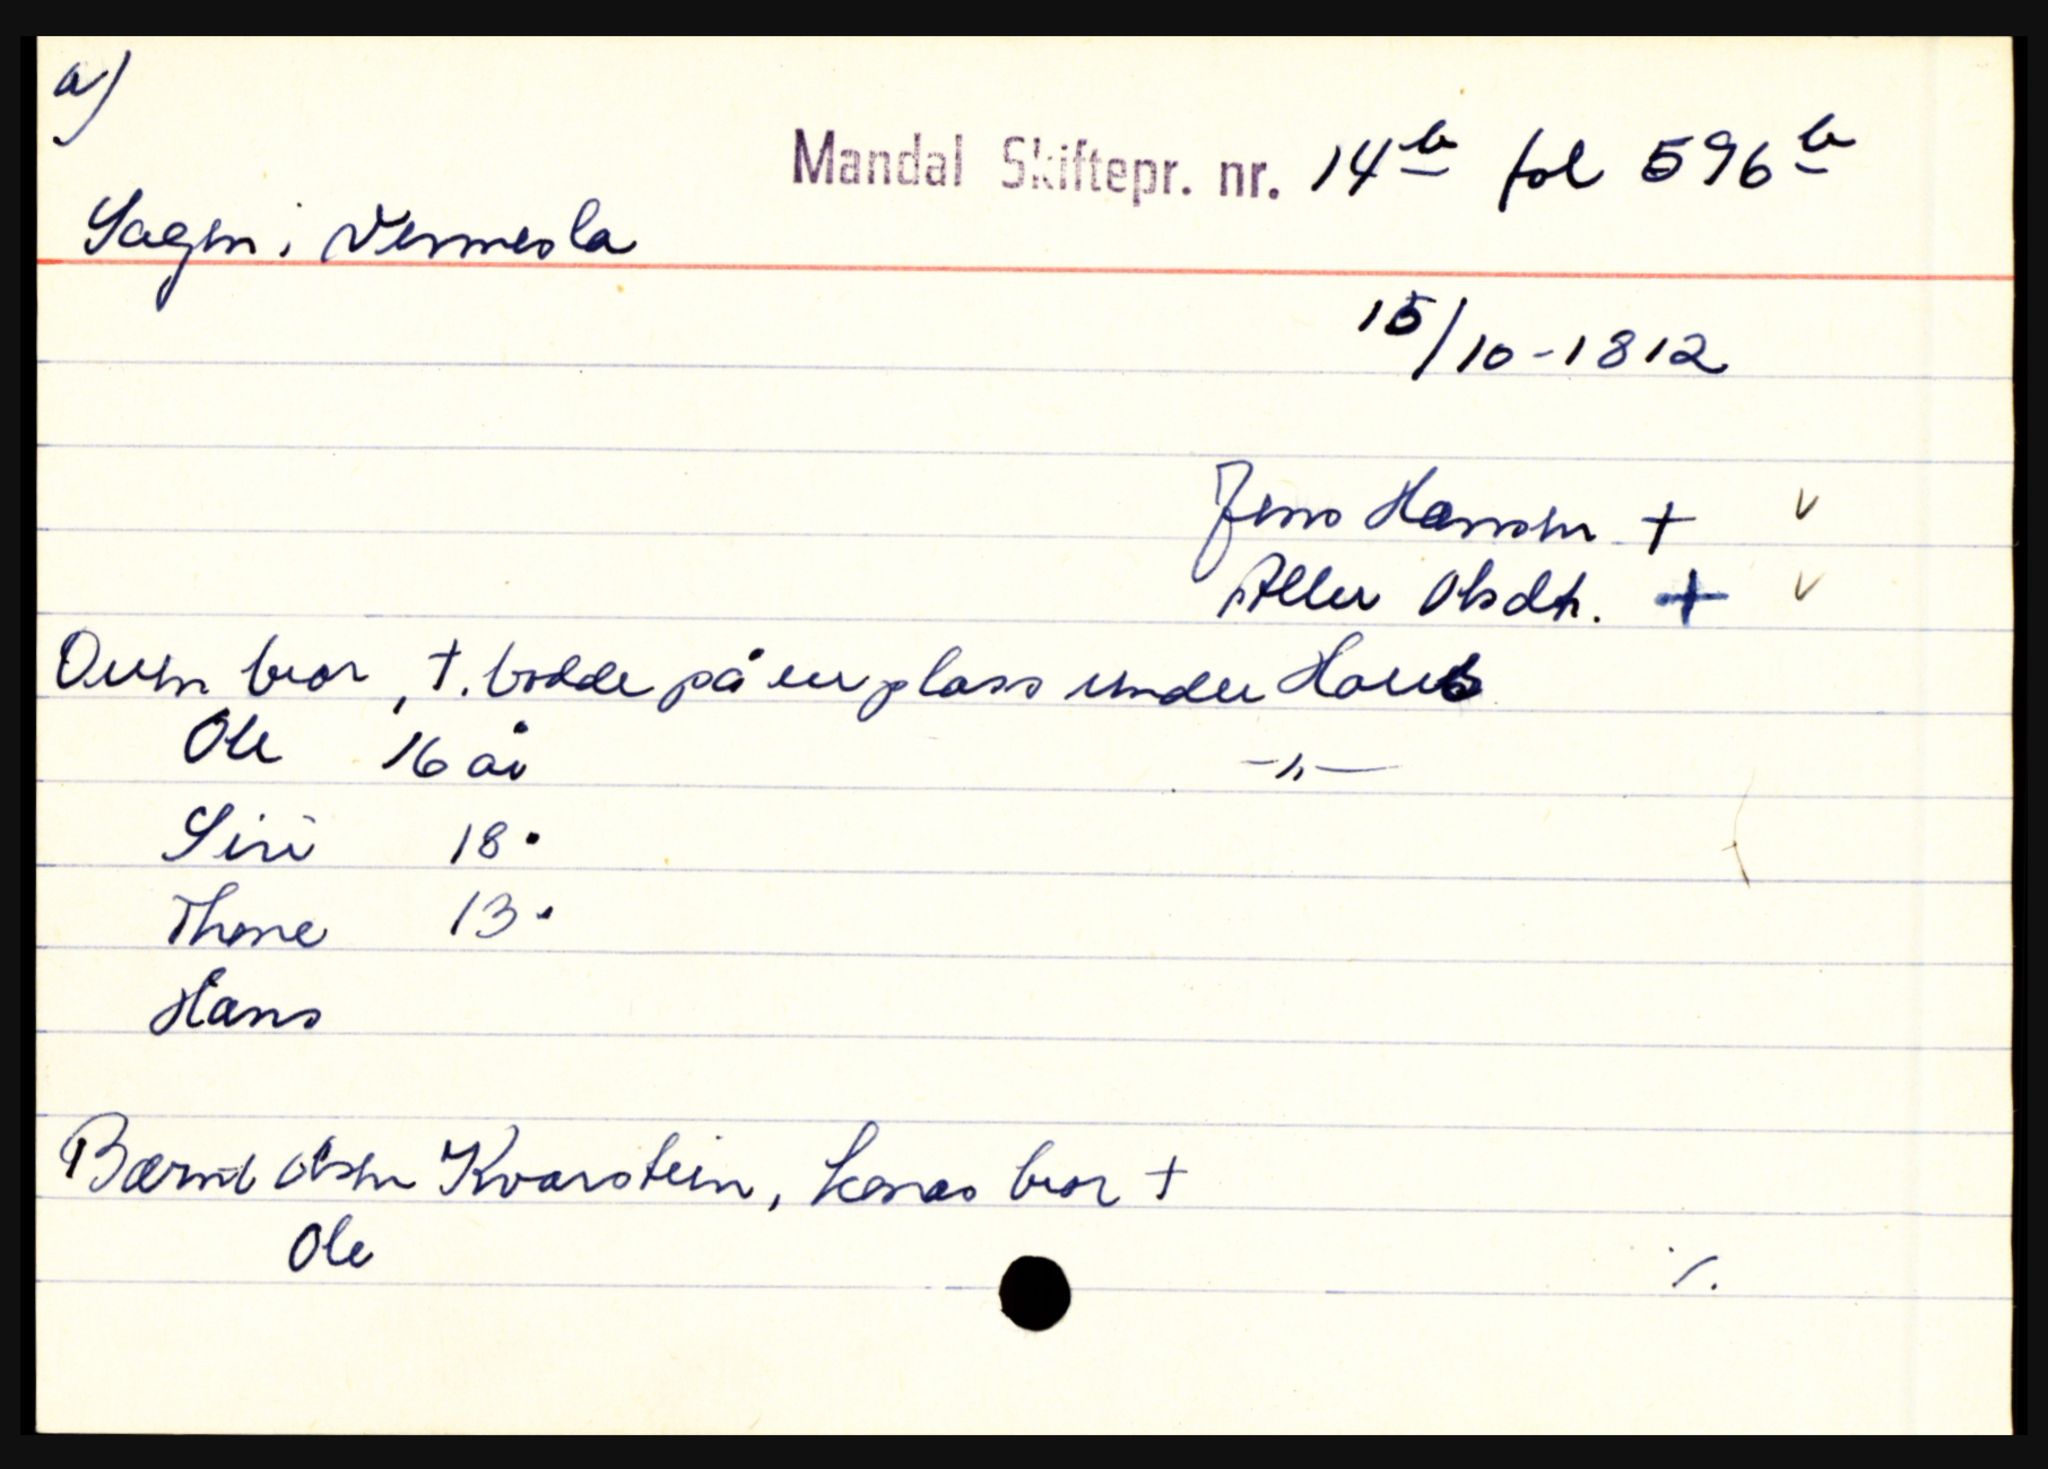 a)
Mandal Skiftepr. nr. 14b fol 596b
Sagen i Vennesla
15/10-1812
Jens Hansen + v
Aller Olsdtr. + v
bror, +. bodde på en plass under
Ole 16 år -"-
Siri 18 "
Thone 13 "
Hans
Olsen Kvarstein, konas bror +
Ole
./.